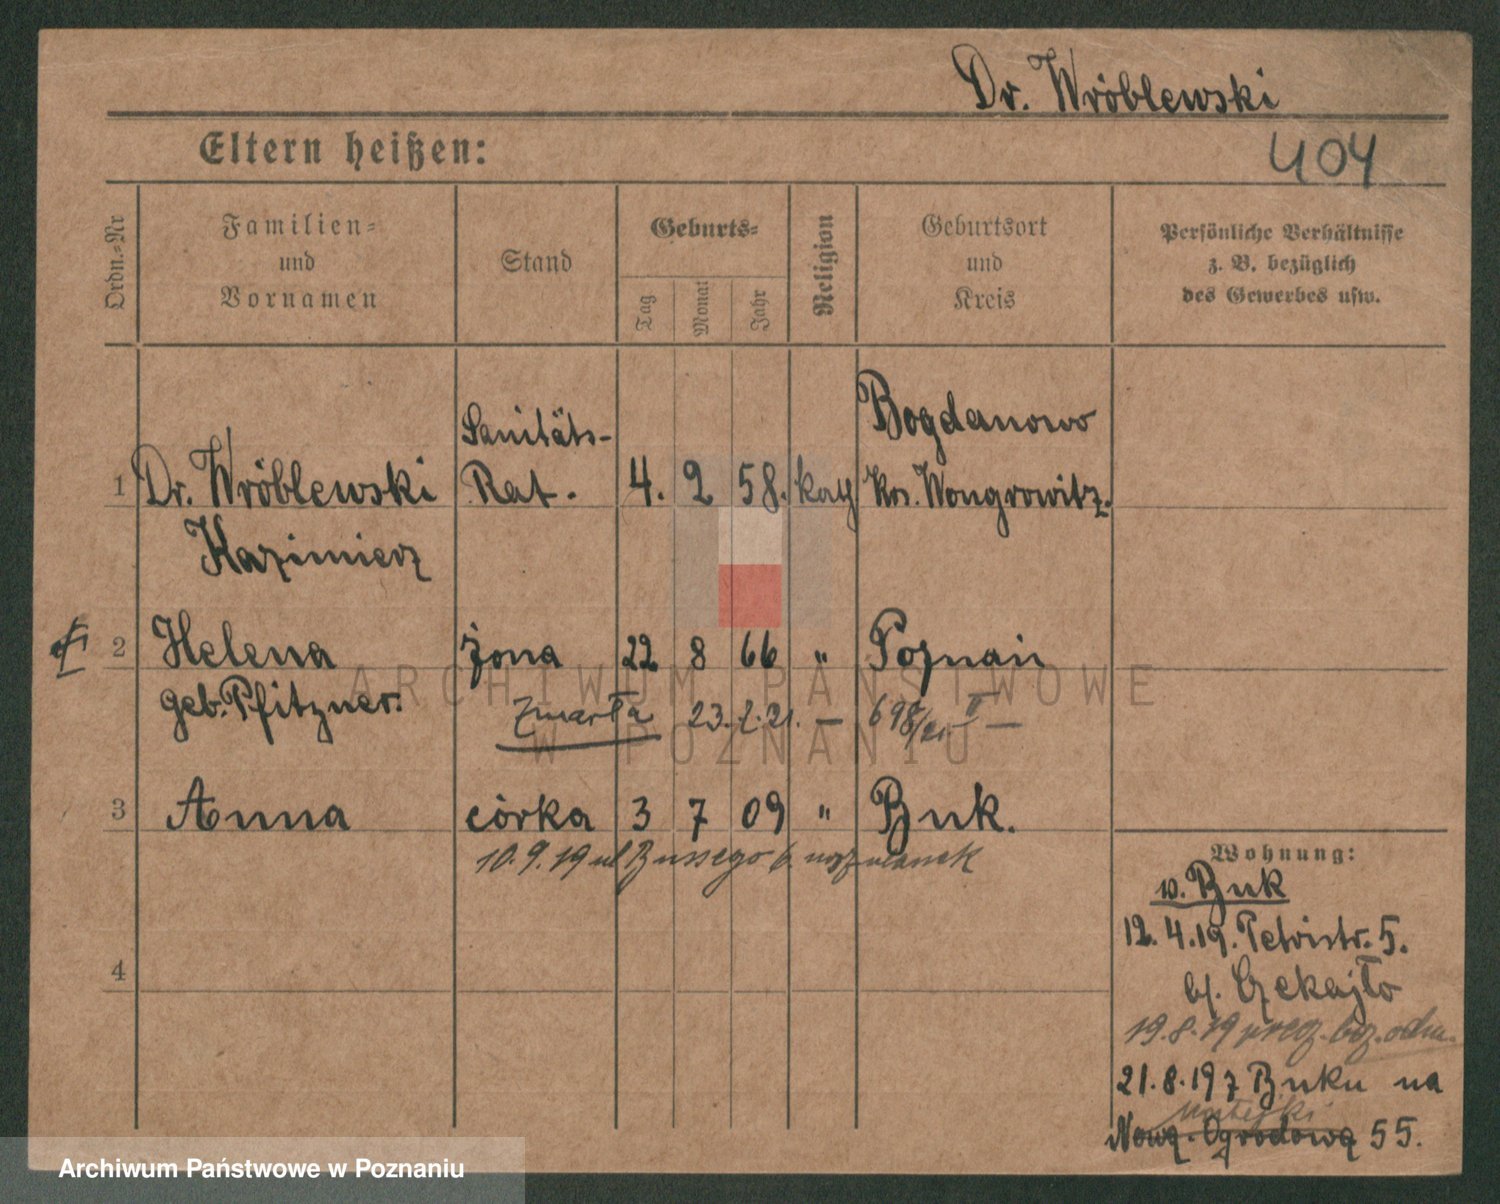 Dr. Wróblewski
Eltern heißen:
404
Ordn.-Nr
Familien-
und
Vornamen
Stand
Geburts-
Tag
Monat
Jahr
Religion
Geburtsort
und
Kreis
Persönliche Verhältnisse
z. B. bezüglich
des Gewerbes usw.
1 Dr. Wróblewski Sanitäts-Rat. 4. 2 58. kath Bogdanowo Krs. Wongrowitz.
Kazimierz
2 Helena żona 22 8 66 " Poznań
geb. Pfitzner. zmarła 23. 2. 21. — 698/21 II —
3 Anna córka 3 7 09 " Buk.
10. 9. 19 ul
4
Wohnung:
w. Buk
12. 4. 19. Petristr. 5.
bj. Czekajło
19. 8. 19
21. 8. 19 z Buku na
Matejki
Nową-Ogrodową 55.
ARCHIWUM PAŃSTWOWE
W POZNANIU
Archiwum Państwowe w Poznaniu